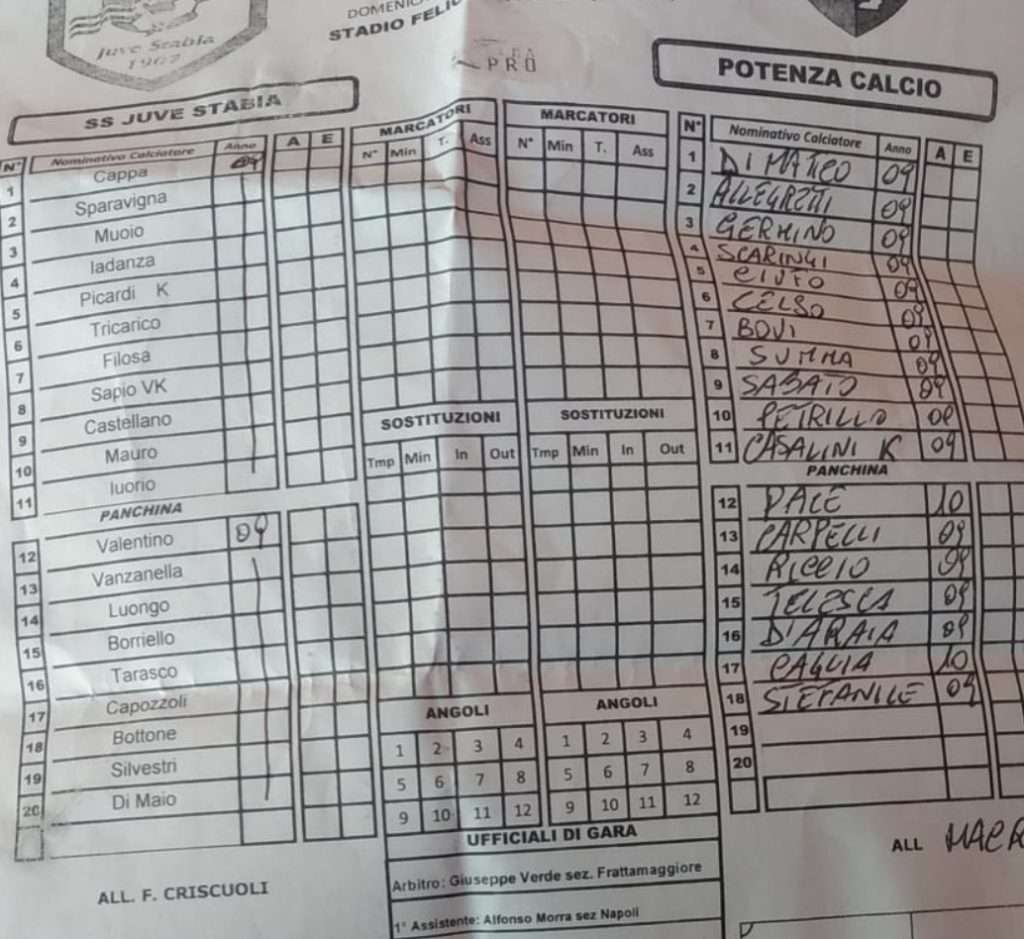 Juve Stabia
1907
DOMENIC
STADIO FELI
PRO
SS JUVE STABIA
POTENZA CALCIO
N° Nominativo Calciatore Anno A E
1 Cappa 09
2 Sparavigna
3 Muoio
4 Iadanza
5 Picardi K
6 Tricarico
7 Filosa
8 Sapio VK
9 Castellano
10 Mauro
11 Iuorio
PANCHINA
12 Valentino 09
13 Vanzanella
14 Luongo
15 Borriello
16 Tarasco
17 Capozzoli
18 Bottone
19 Silvestri
20 Di Maio
ALL. F. CRISCUOLI
MARCATORI
N° Min T. Ass
MARCATORI
N° Min T. Ass
SOSTITUZIONI
Tmp Min In Out
SOSTITUZIONI
Tmp Min In Out
ANGOLI
1 2 3 4
5 6 7 8
9 10 11 12
ANGOLI
1 2 3 4
5 6 7 8
9 10 11 12
UFFICIALI DI GARA
Arbitro: Giuseppe Verde sez. Frattamaggiore
1° Assistente: Alfonso Morra sez Napoli
N° Nominativo Calciatore Anno A E
1 DI MATTEO 09
2 ALLEGRETTI 09
3 GERMINO 09
4 SCARINGI 09
5 CIUTO 09
6 CELSO 09
7 BOVI 09
8 SUMMA 09
9 SABATO 09
10 PETRILLO 09
11 CASALINI K 09
PANCHINA
12 PACE 10
13 CARPELLI 09
14 RICCIO 09
15 TELESCA 09
16 D'ARAIA 09
17 PAGLIA 10
18 STEFANILE 09
19
20
ALL